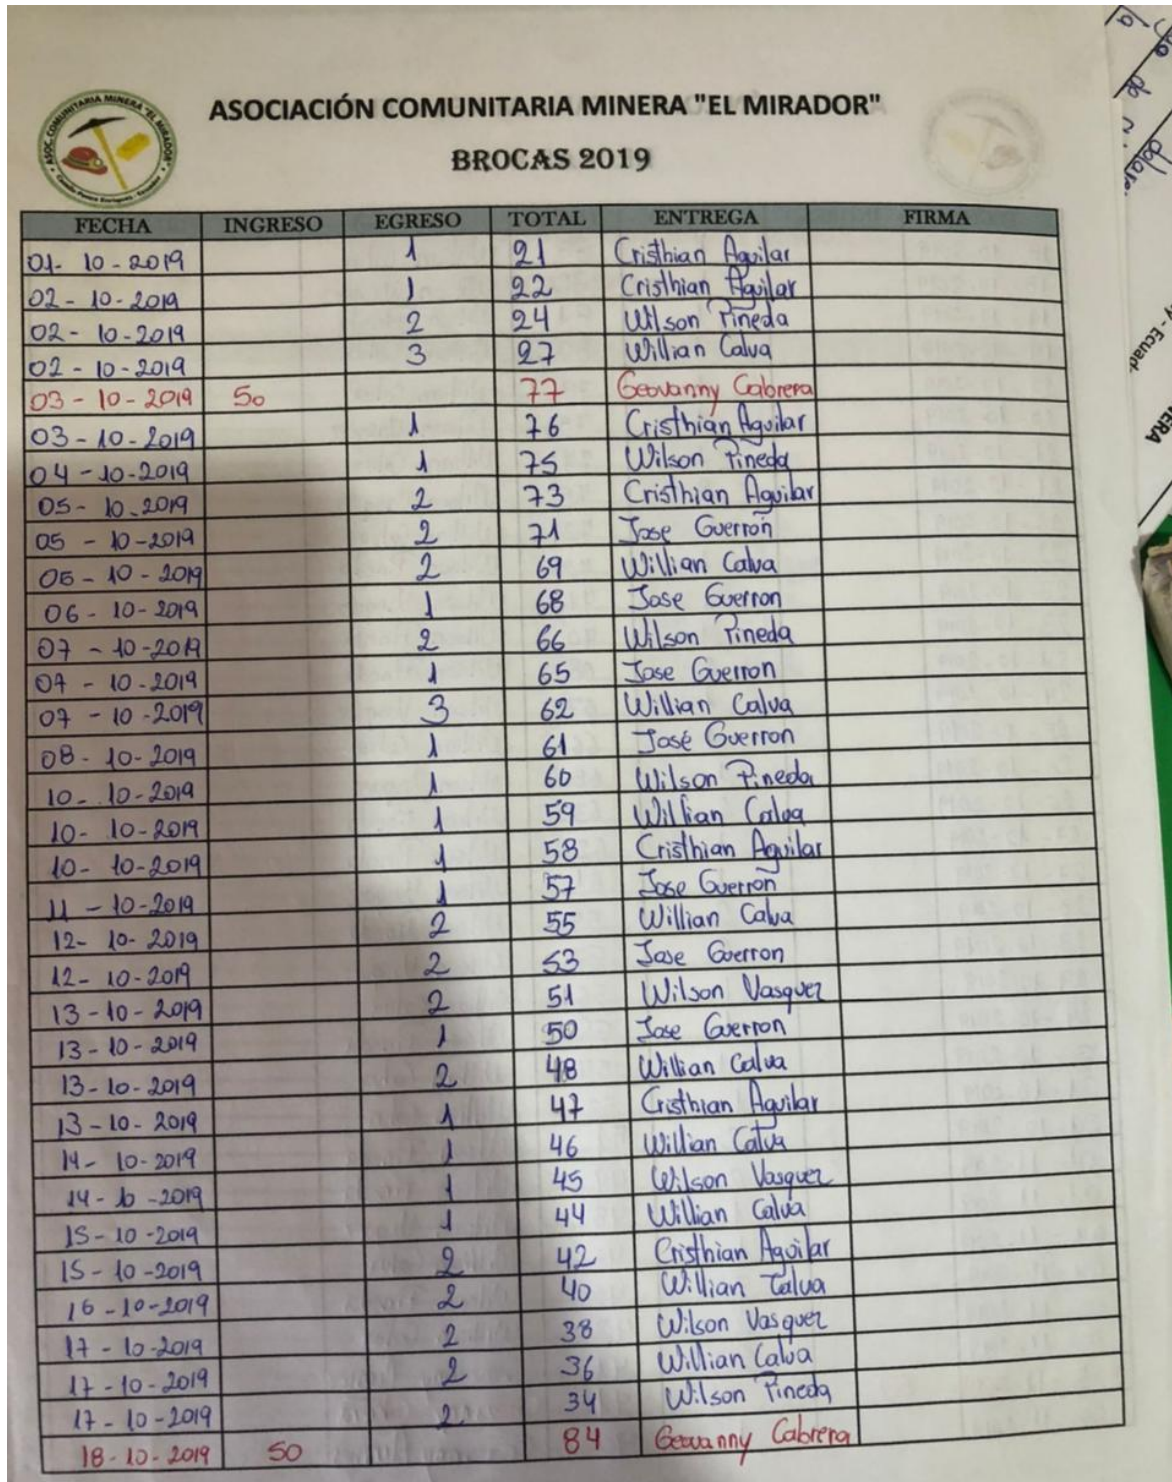 ASOC. COMUNITARIA MINERA "EL MIRADOR"
ASOCIACIÓN COMUNITARIA MINERA "EL MIRADOR"
BROCAS 2019
FECHA INGRESO EGRESO TOTAL ENTREGA FIRMA
01- 10-2019 1 21 Cristhian Aguilar
02-10-2019 1 22 Cristhian Aguilar
02-10-2019 2 24 Wilson Pineda
02-10-2019 3 27 Willian Calva
03-10-2019 50 77 Geovanny Cabrera
03-10-2019 1 76 Cristhian Aguilar
04-10-2019 1 75 Wilson Pineda
05-10-2019 2 73 Cristhian Aguilar
05-10-2019 2 71 Jose Guerron
05-10-2019 2 69 Willian Calva
06-10-2019 1 68 Jose Guerron
07-10-2019 2 66 Wilson Pineda
07-10-2019 1 65 Jose Guerron
07-10-2019 3 62 Willian Calva
08-10-2019 1 61 José Guerron
10-10-2019 1 60 Wilson Pineda
10-10-2019 1 59 Willian Calva
10-10-2019 1 58 Cristhian Aguilar
11-10-2019 1 57 Jose Guerron
12-10-2019 2 55 Willian Calva
12-10-2019 2 53 Jose Guerron
13-10-2019 2 51 Wilson Vasquez
13-10-2019 1 50 Jose Guerron
13-10-2019 2 48 Willian Calva
13-10-2019 1 47 Cristhian Aguilar
14-10-2019 1 46 Willian Calva
14-10-2019 1 45 Wilson Vasquez
15-10-2019 1 44 Willian Calva
15-10-2019 2 42 Cristhian Aguilar
16-10-2019 2 40 Willian Calva
17-10-2019 2 38 Wilson Vasquez
17-10-2019 2 36 Willian Calva
17-10-2019 2 34 Wilson Pineda
18-10-2019 50 84 Geovanny Cabrera